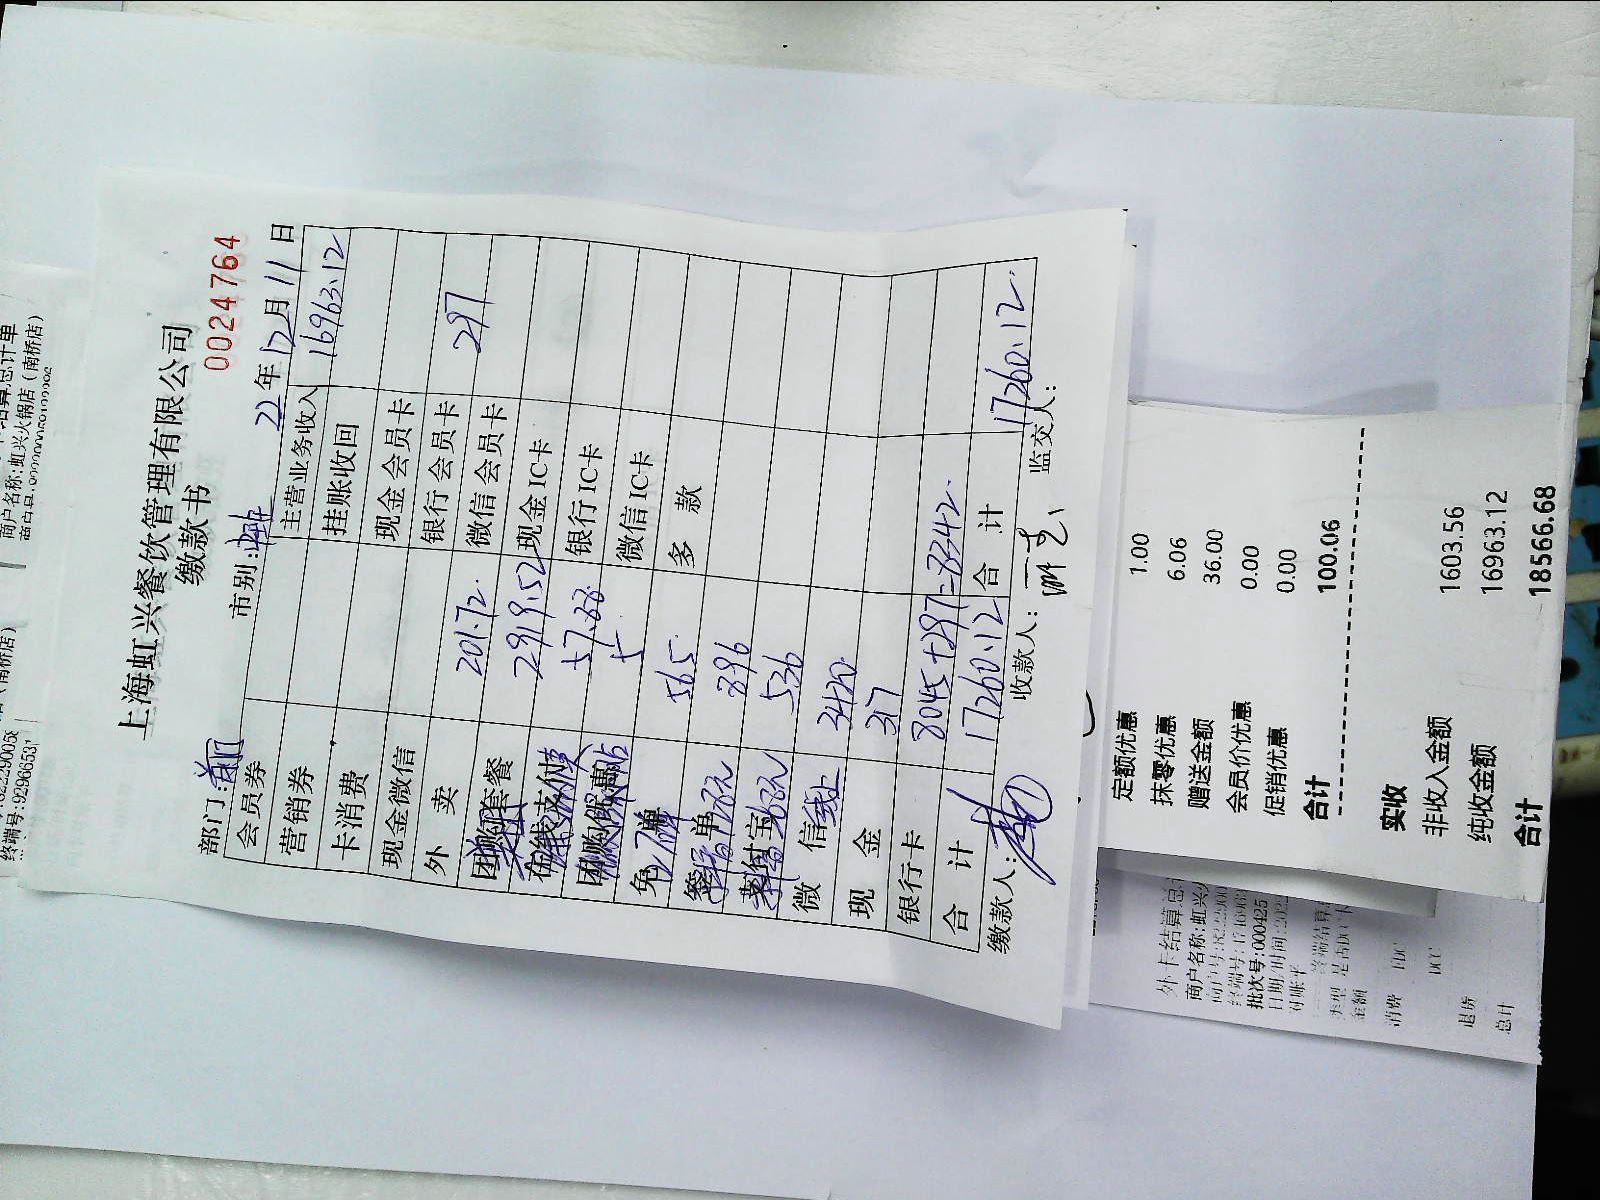 上海虹兴餐饮管理有限公司
缴款书
0024764
部门:前厅 市别: 22年12月11日
会员券 主营业务收入 16963.12
营销券 挂账收回
卡消费 现金会员卡
现金微信 银行会员卡
外卖 201.72 微信会员卡 297
团购套餐 2919.52 现金IC卡
在线支付 57.88 银行IC卡
团购优惠 5 微信IC卡
免单 565 多款
签单 896
支付宝 536
微信 3420
现金 317
银行卡 8045+297=8342
合计 17260.12 合计 17260.12
缴款人: 收款人: 监交人:
定额优惠 1.00
抹零优惠 6.06
赠送金额 36.00
会员价优惠 0.00
促销优惠 0.00
合计 100.06
实收
非收入金额 1603.56
纯收金额 16963.12
合计 18566.68
商户名称:虹兴火锅店(南桥店)
外卡结算总
商户名称:虹兴火
批次号:000425
对账平
金额
消费
退货
总计